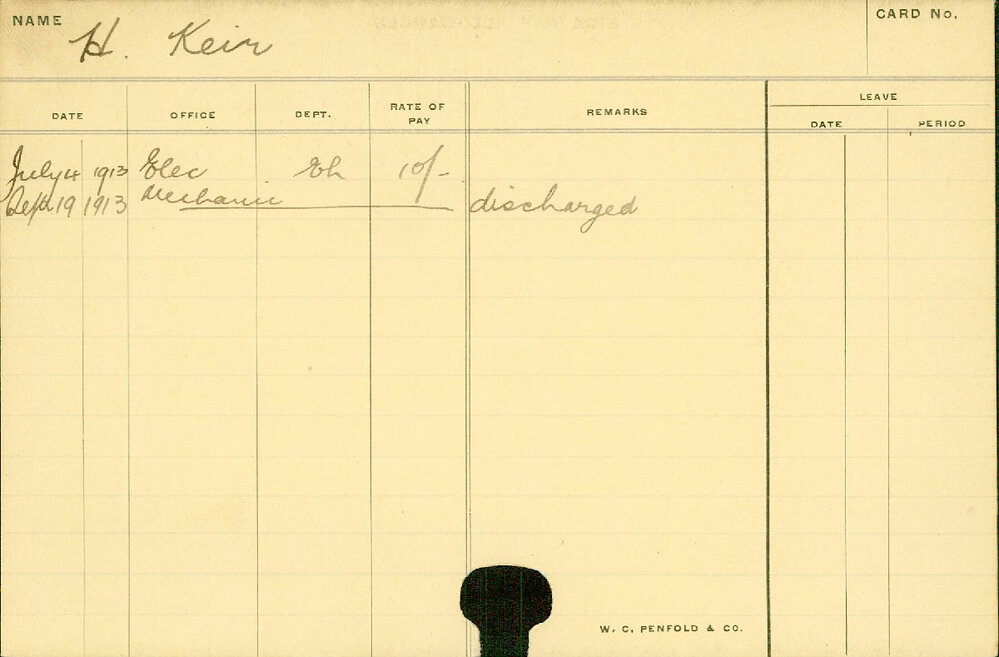 NAME H. Keir CARD No.
LEAVE
DATE OFFICE DEPT. RATE OF PAY REMARKS DATE PERIOD
July 4 1913 Elec Eh 10/-
Sept 19 1913 Mechanic discharged
W. C. PENFOLD & CO.